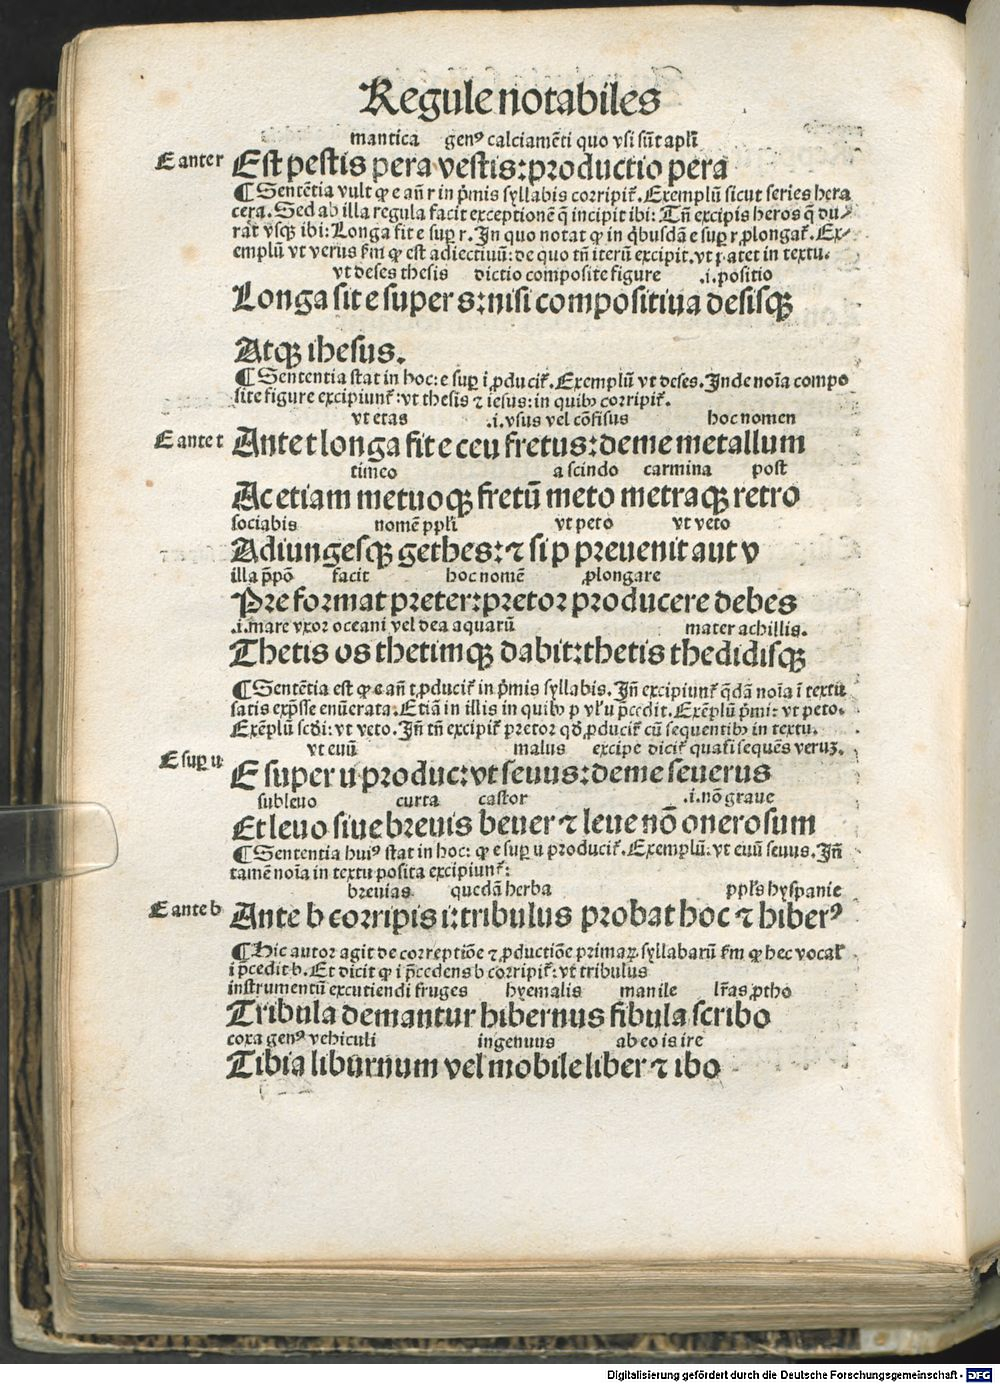 Regule notabiles
mantica genꝰ calciamēti quo vsi sūt apl̄i
E ante r Est pestis pera vestis: productio pera
¶ Sentētia vult ꝙ e añ r in p̄mis syllabis corripit᷑. Exemplū sicut series hera
cera. Sed ab illa regula facit exceptionē q̄ incipit ibi: Tñ excipis heros q̄ du⸗
rāt vsꝙ ibi: Longa fit e suꝑ r. In quo notat ꝙ in q̇busdā e suꝑ r ꝓlongat᷑. Ex⸗
emplū vt verus ẜm ꝙ est adiectiuū: de quo tñ iterū excipit. vt patet in textu.
vt deses thesis dictio composite figure .i. positio
Longa sit e super s: nisi compositiua desisꝙ
Atꝙ ihesus.
¶ Sententia stat in hoc: e suꝑ i ꝓducit᷑. Exemplū vt deses. Inde noīa compo
site figure excipiunt᷑: vt thesis ⁊ iesus: in quibꝰ corripit᷑.
vt etas .i. vsus vel cōfisus hoc nomen
E ante t Ante t longa fit e ceu fretus: deme metallum
timeo a scindo carmina post
Ac etiam metuoꝙ fretū meto metraꝙ retro
sociabis nomē ppl̄i vt peto vt veto
Adiungesꝙ gethes: ⁊ si p preuenit aut v
illa p̄pō facit hoc nomē ꝓlongare
Pre format preter: pretor producere debes
.i. mare vxor oceani vel dea aquarū mater achillis.
Thetis os thetimꝙ dabit: thetis thedidisꝙ
¶ Sentētia est ꝙ e añ t ꝓducit᷑ in p̄mis syllabis. Iñ excipiunt᷑ q̄dā noīa ī textu
satis exp̄sse enūerata. Etiā in illis in quibꝰ p vl̓ u p̄cedit. Exēplū p̄mi: vt peto.
Exēplū scd̄i: vt veto. Iñ tñ excipit᷑ pretor qd̓ ꝓducit᷑ cū sequentibꝰ in textu.
vt euū malus excipe dicit᷑ quasi sequēs veruꝫ.
E suꝑ u E super u produc: vt seuus: deme seuerus
subleuo curta castor .i. nō graue
Et leuo siue breuis beuer ⁊ leue nō onerosum
¶ Sententia huiꝰ stat in hoc: ꝙ e suꝑ u producit᷑. Exemplū: vt euū seuus. Iñ
tamē noīa in textu posita excipiunt᷑:
breuias quedā herba ppl̓s hyspanie
E ante b Ante b corripis i: tribulus probat hoc ⁊ hiberꝰ
¶ Hic autor agit de correptiōe ⁊ ꝓductiōe primaꝝ syllabarū ẜm ꝙ hec vocal̓
i p̄cedit b. Et dicit ꝙ i p̄cedens b corripit᷑: vt tribulus
instrumentū excutiendi fruges hyemalis manile lr̄as ꝓtho
Tribula demantur hibernus fibula scribo
coxa genꝰ vehiculi ingenuus ab eo is ire
Tibia liburnum vel mobile liber ⁊ ibo
Digitalisierung gefördert durch die Deutsche Forschungsgemeinschaft - DFG